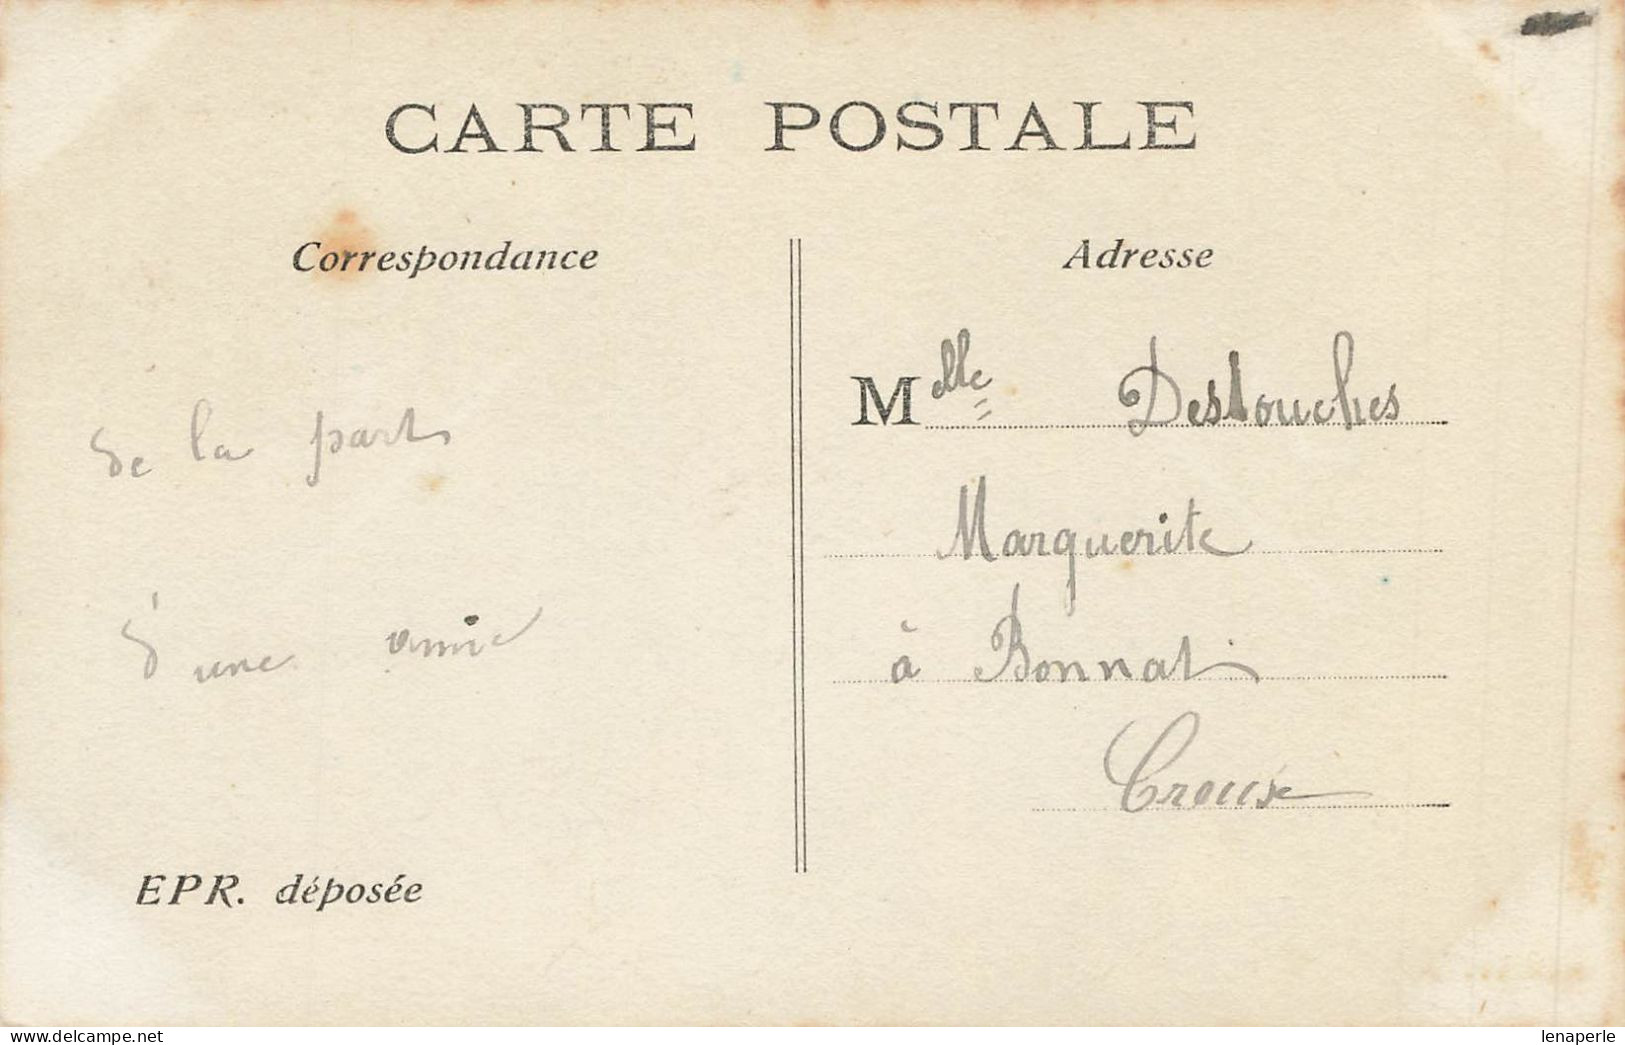 CARTE POSTALE
Correspondance
de la part
d'une amie
EPR. déposée
Adresse
Melle Destouches
Marguerite
à Bonnat
Creuse
lenaperle